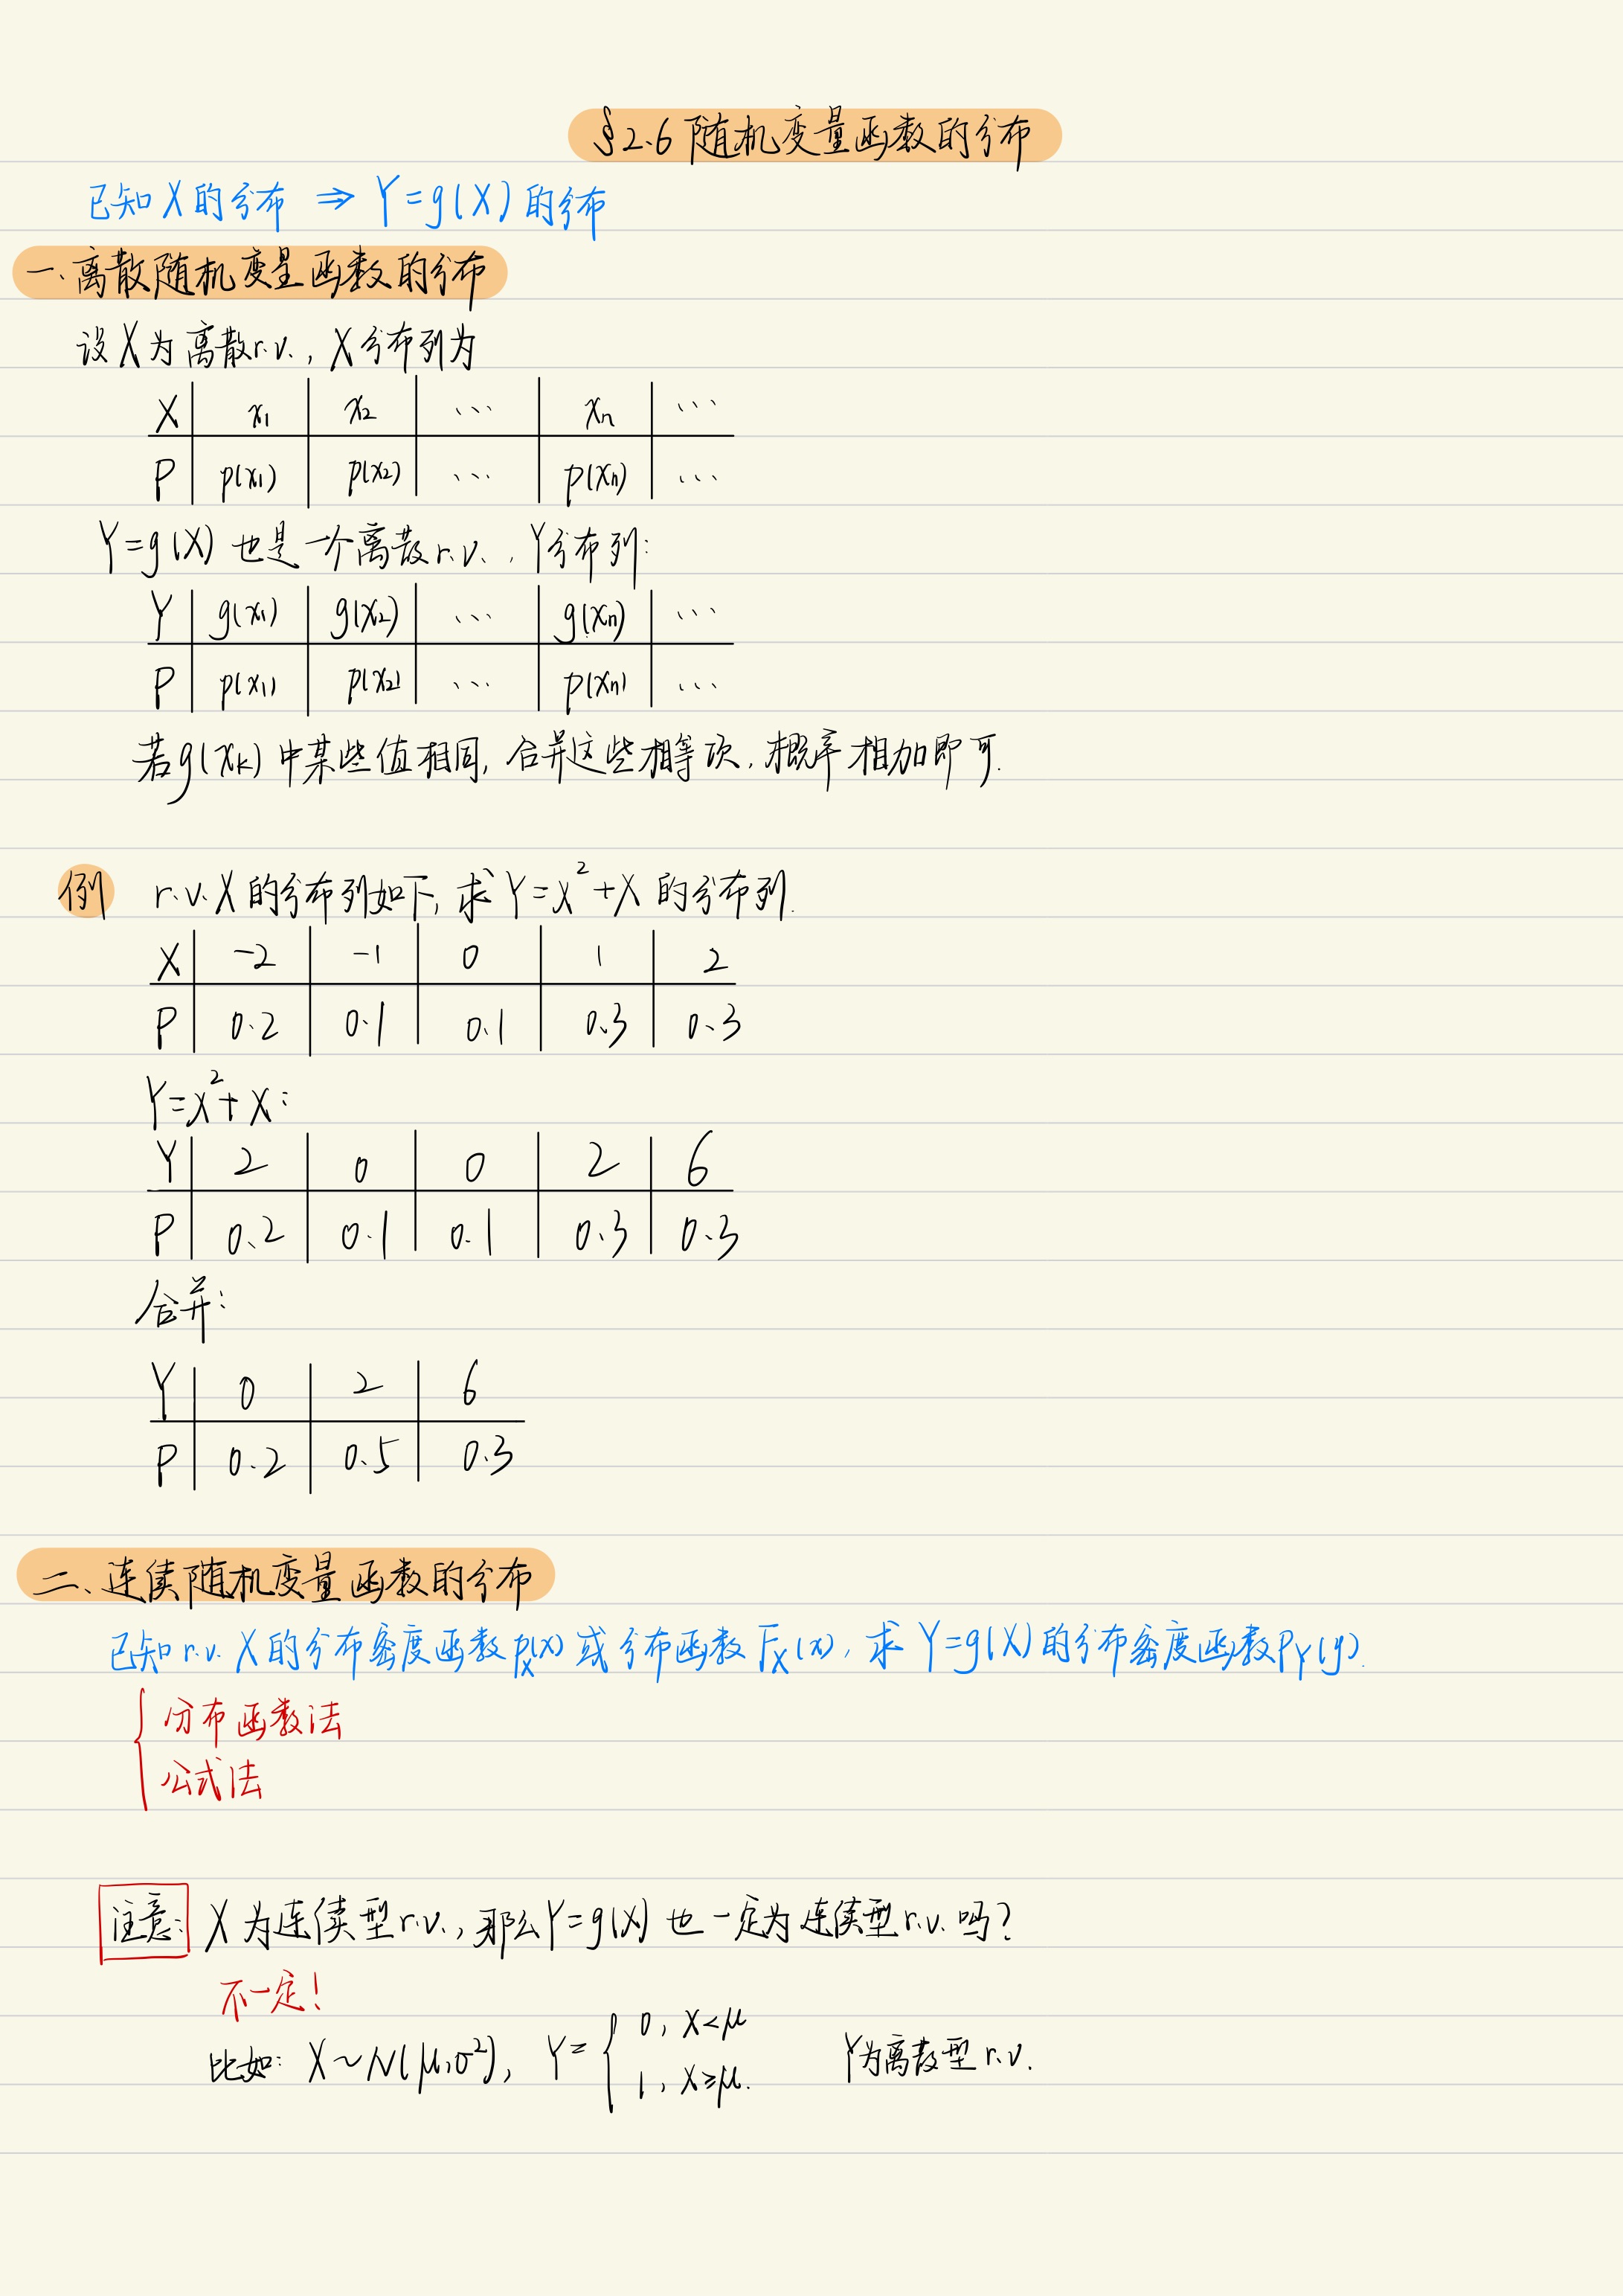 §2.6 随机变量函数的分布
已知X的分布 ⇒ Y=g(X)的分布
一、离散随机变量函数的分布
设X为离散r.v., X分布列为
X | x₁ | x₂ | ... | xₙ | ...
P | p(x₁) | p(x₂) | ... | p(xₙ) | ...
Y=g(X) 也是一个离散r.v., Y分布列:
Y | g(x₁) | g(x₂) | ... | g(xₙ) | ...
P | p(x₁) | p(x₂) | ... | p(xₙ) | ...
若g(xₖ)中某些值相同, 合并这些相等项, 概率相加即可.
例 r.v.X的分布列如下, 求Y=X²+X的分布列.
X | -2 | -1 | 0 | 1 | 2
P | 0.2 | 0.1 | 0.1 | 0.3 | 0.3
Y=X²+X:
Y | 2 | 0 | 0 | 2 | 6
P | 0.2 | 0.1 | 0.1 | 0.3 | 0.3
合并:
Y | 0 | 2 | 6
P | 0.2 | 0.5 | 0.3
二、连续随机变量函数的分布
已知r.v. X的分布密度函数p_X(x)或分布函数F_X(x), 求Y=g(X)的分布密度函数p_Y(y).
{ 分布函数法
公式法
注意: X为连续型r.v., 那么Y=g(X)也一定为连续型r.v.吗?
不一定!
比如: X~N(μ,σ²), Y= { 0, X<μ
1, X≥μ. Y为离散型r.v.